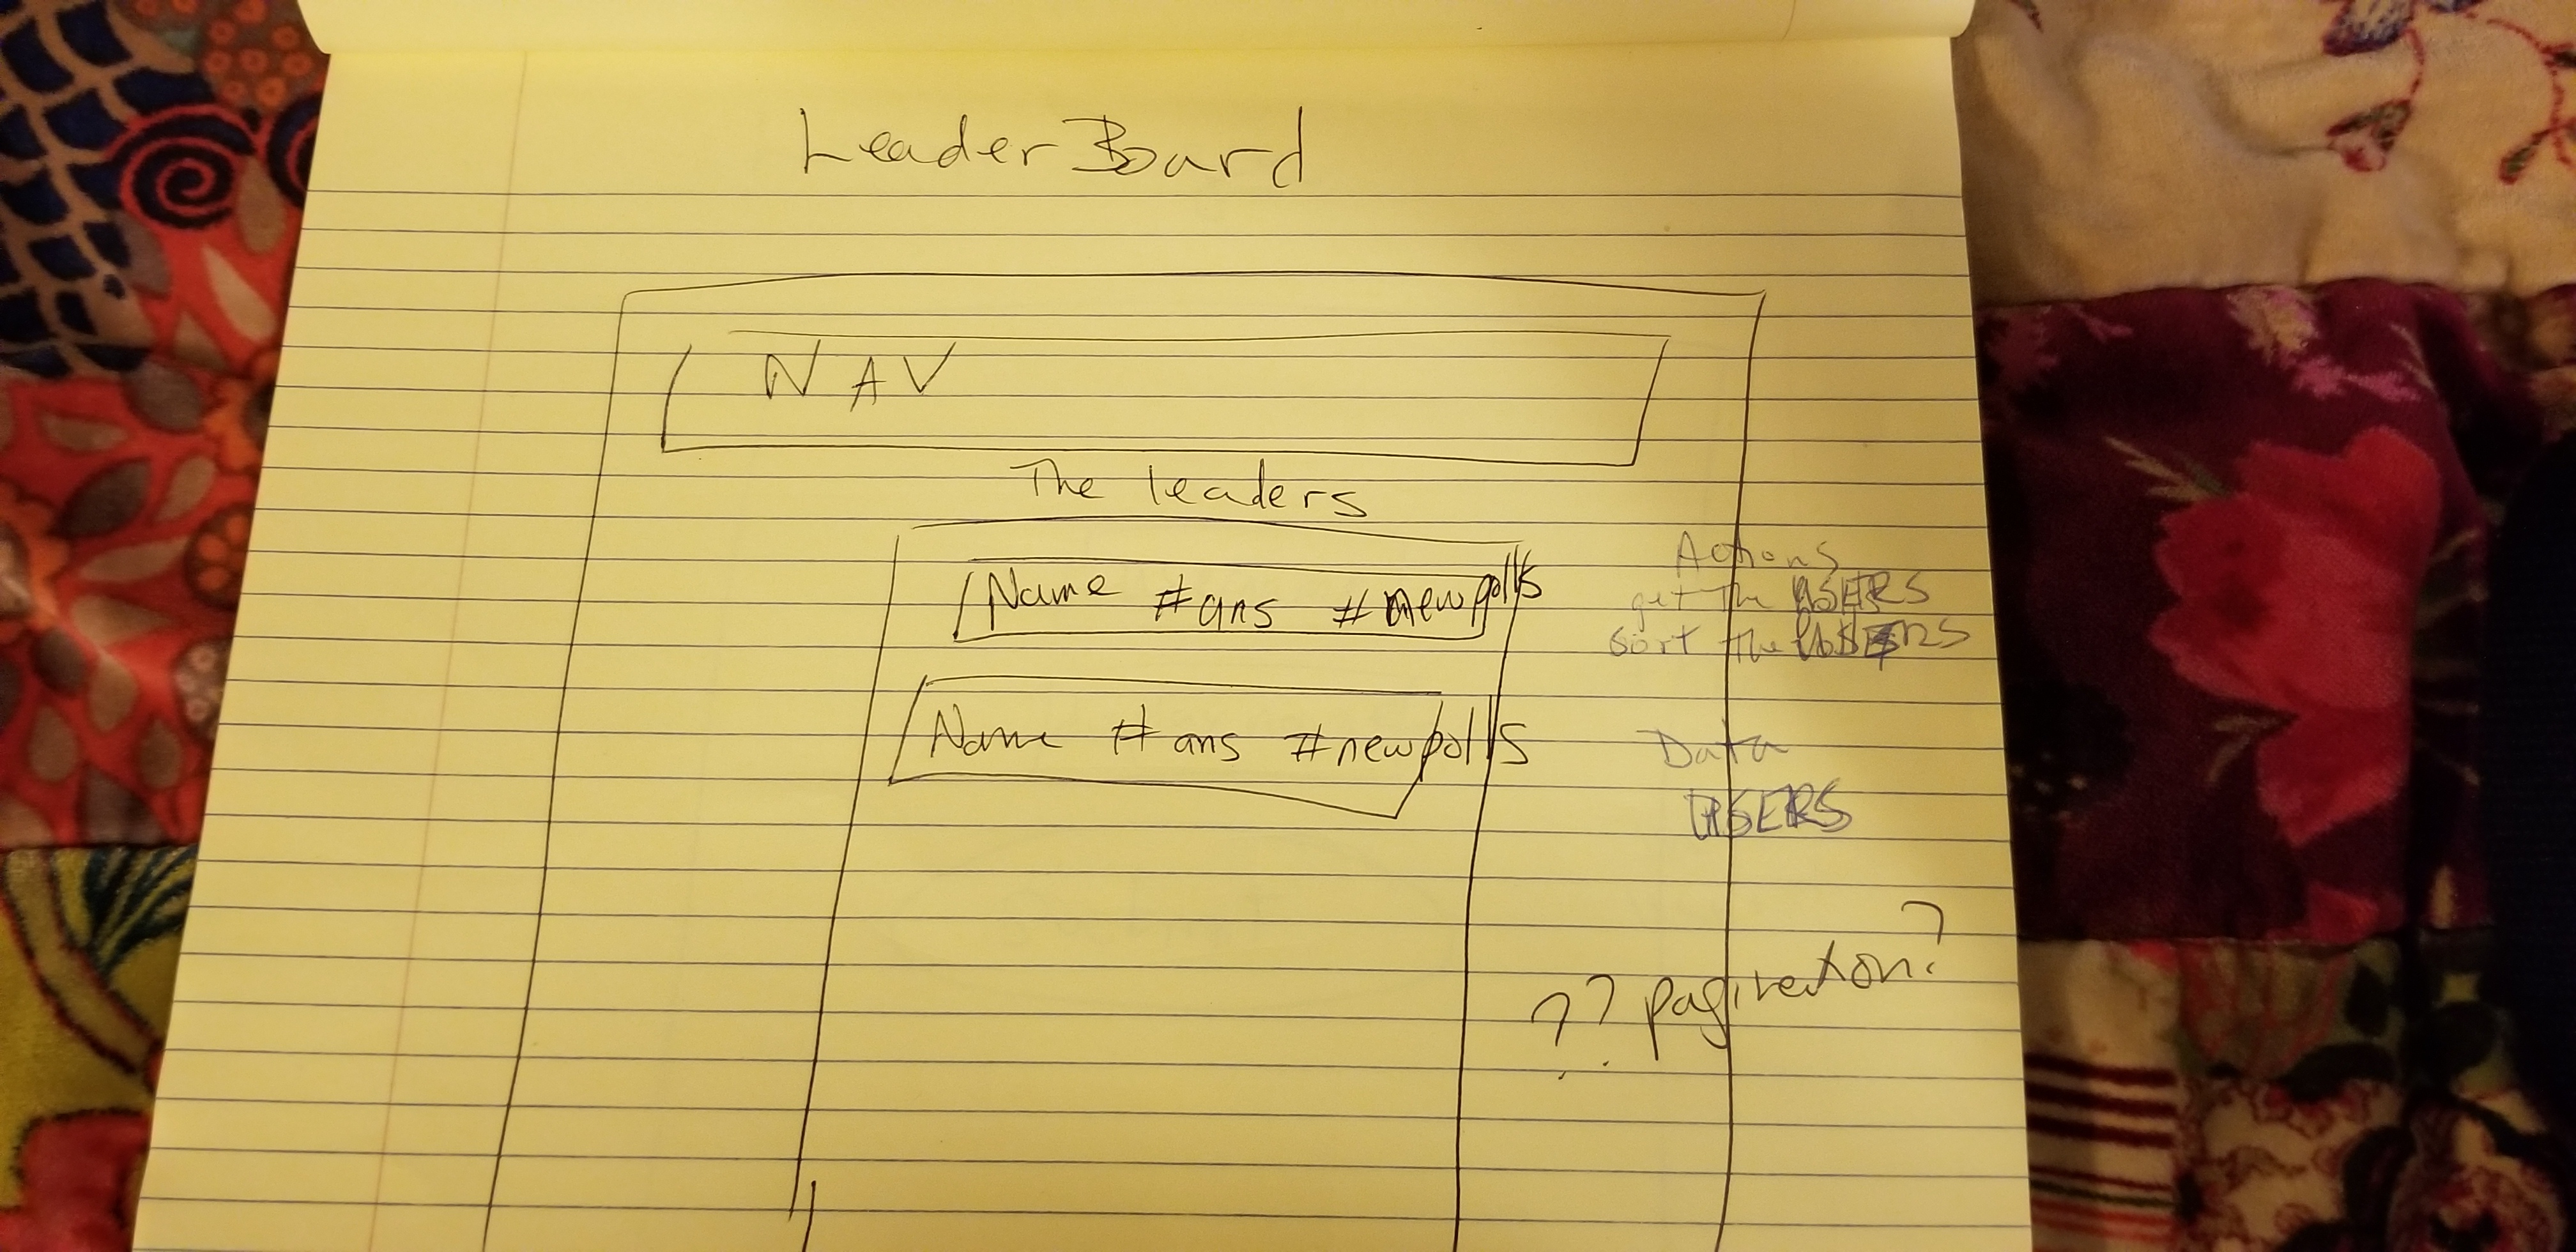 Leader Board
NAV
The leaders
Name #ans #newpolls
Name #ans #newpolls
Actions
get the USERS
sort the USERS
Data
USERS
?? pagination?